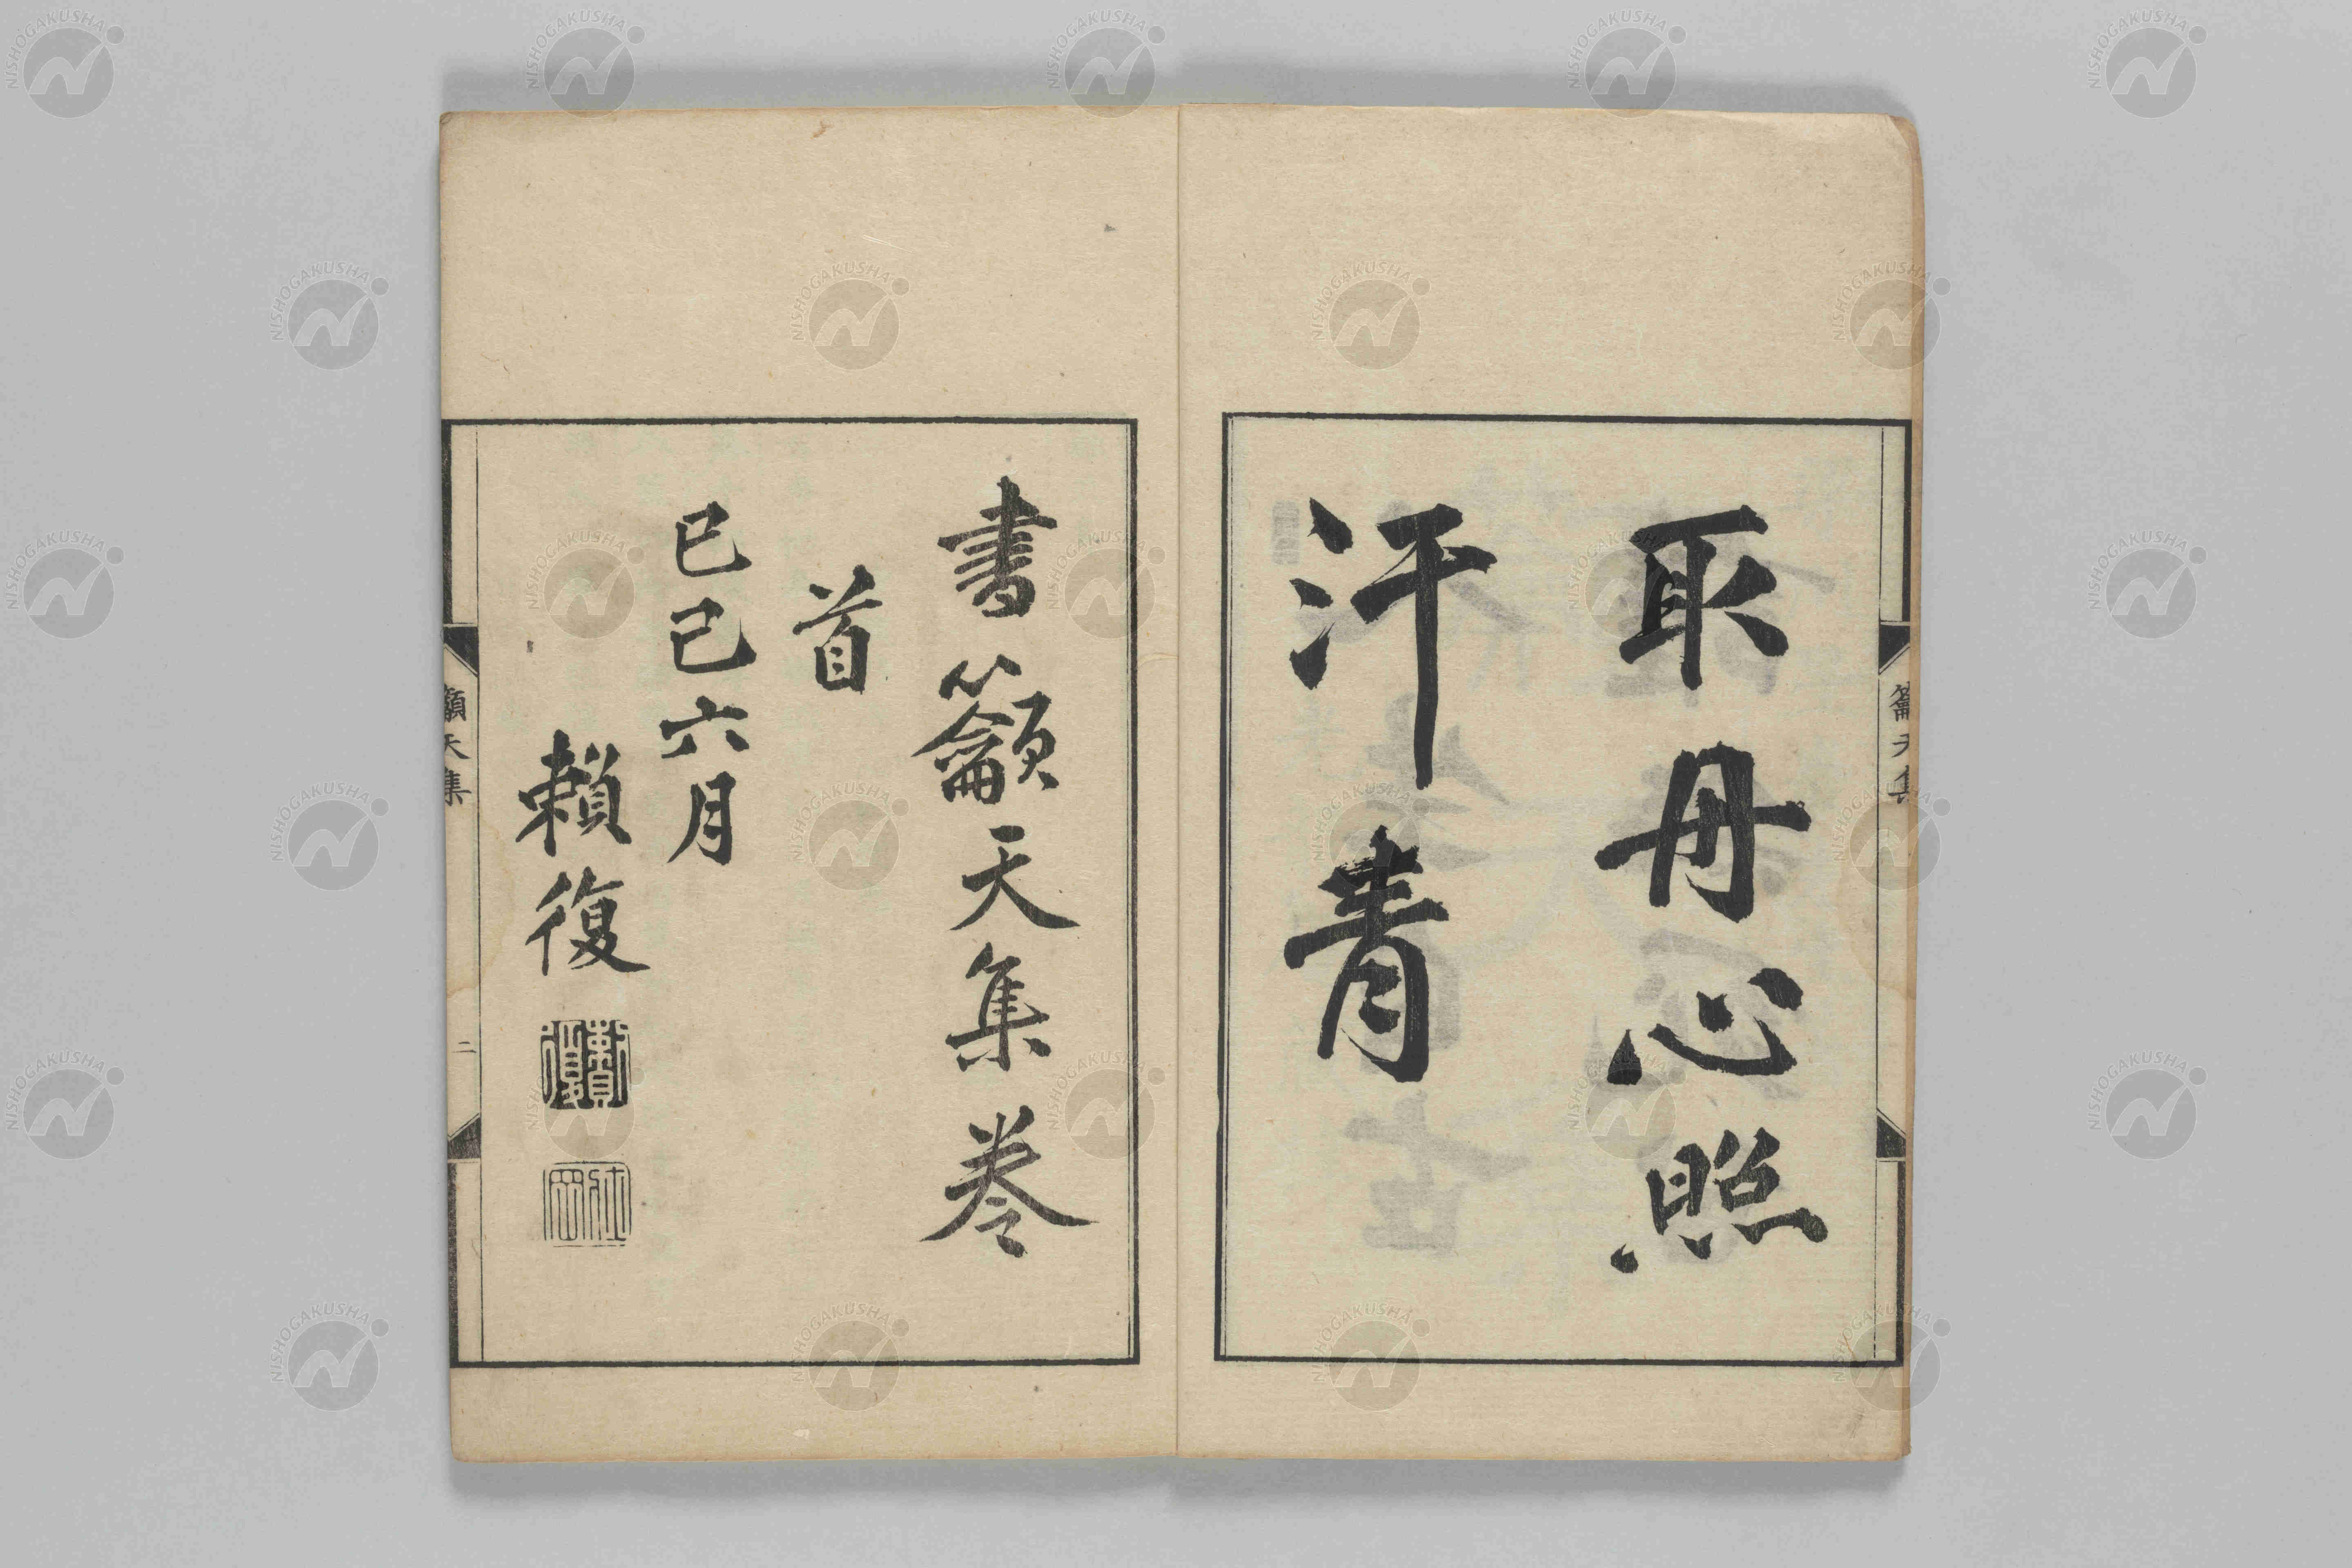 取丹心照
汗青
籲天集
書籲天集巻
首
己巳六月
頼復
頼復
籲天集
二
NISHOGAKUSHA